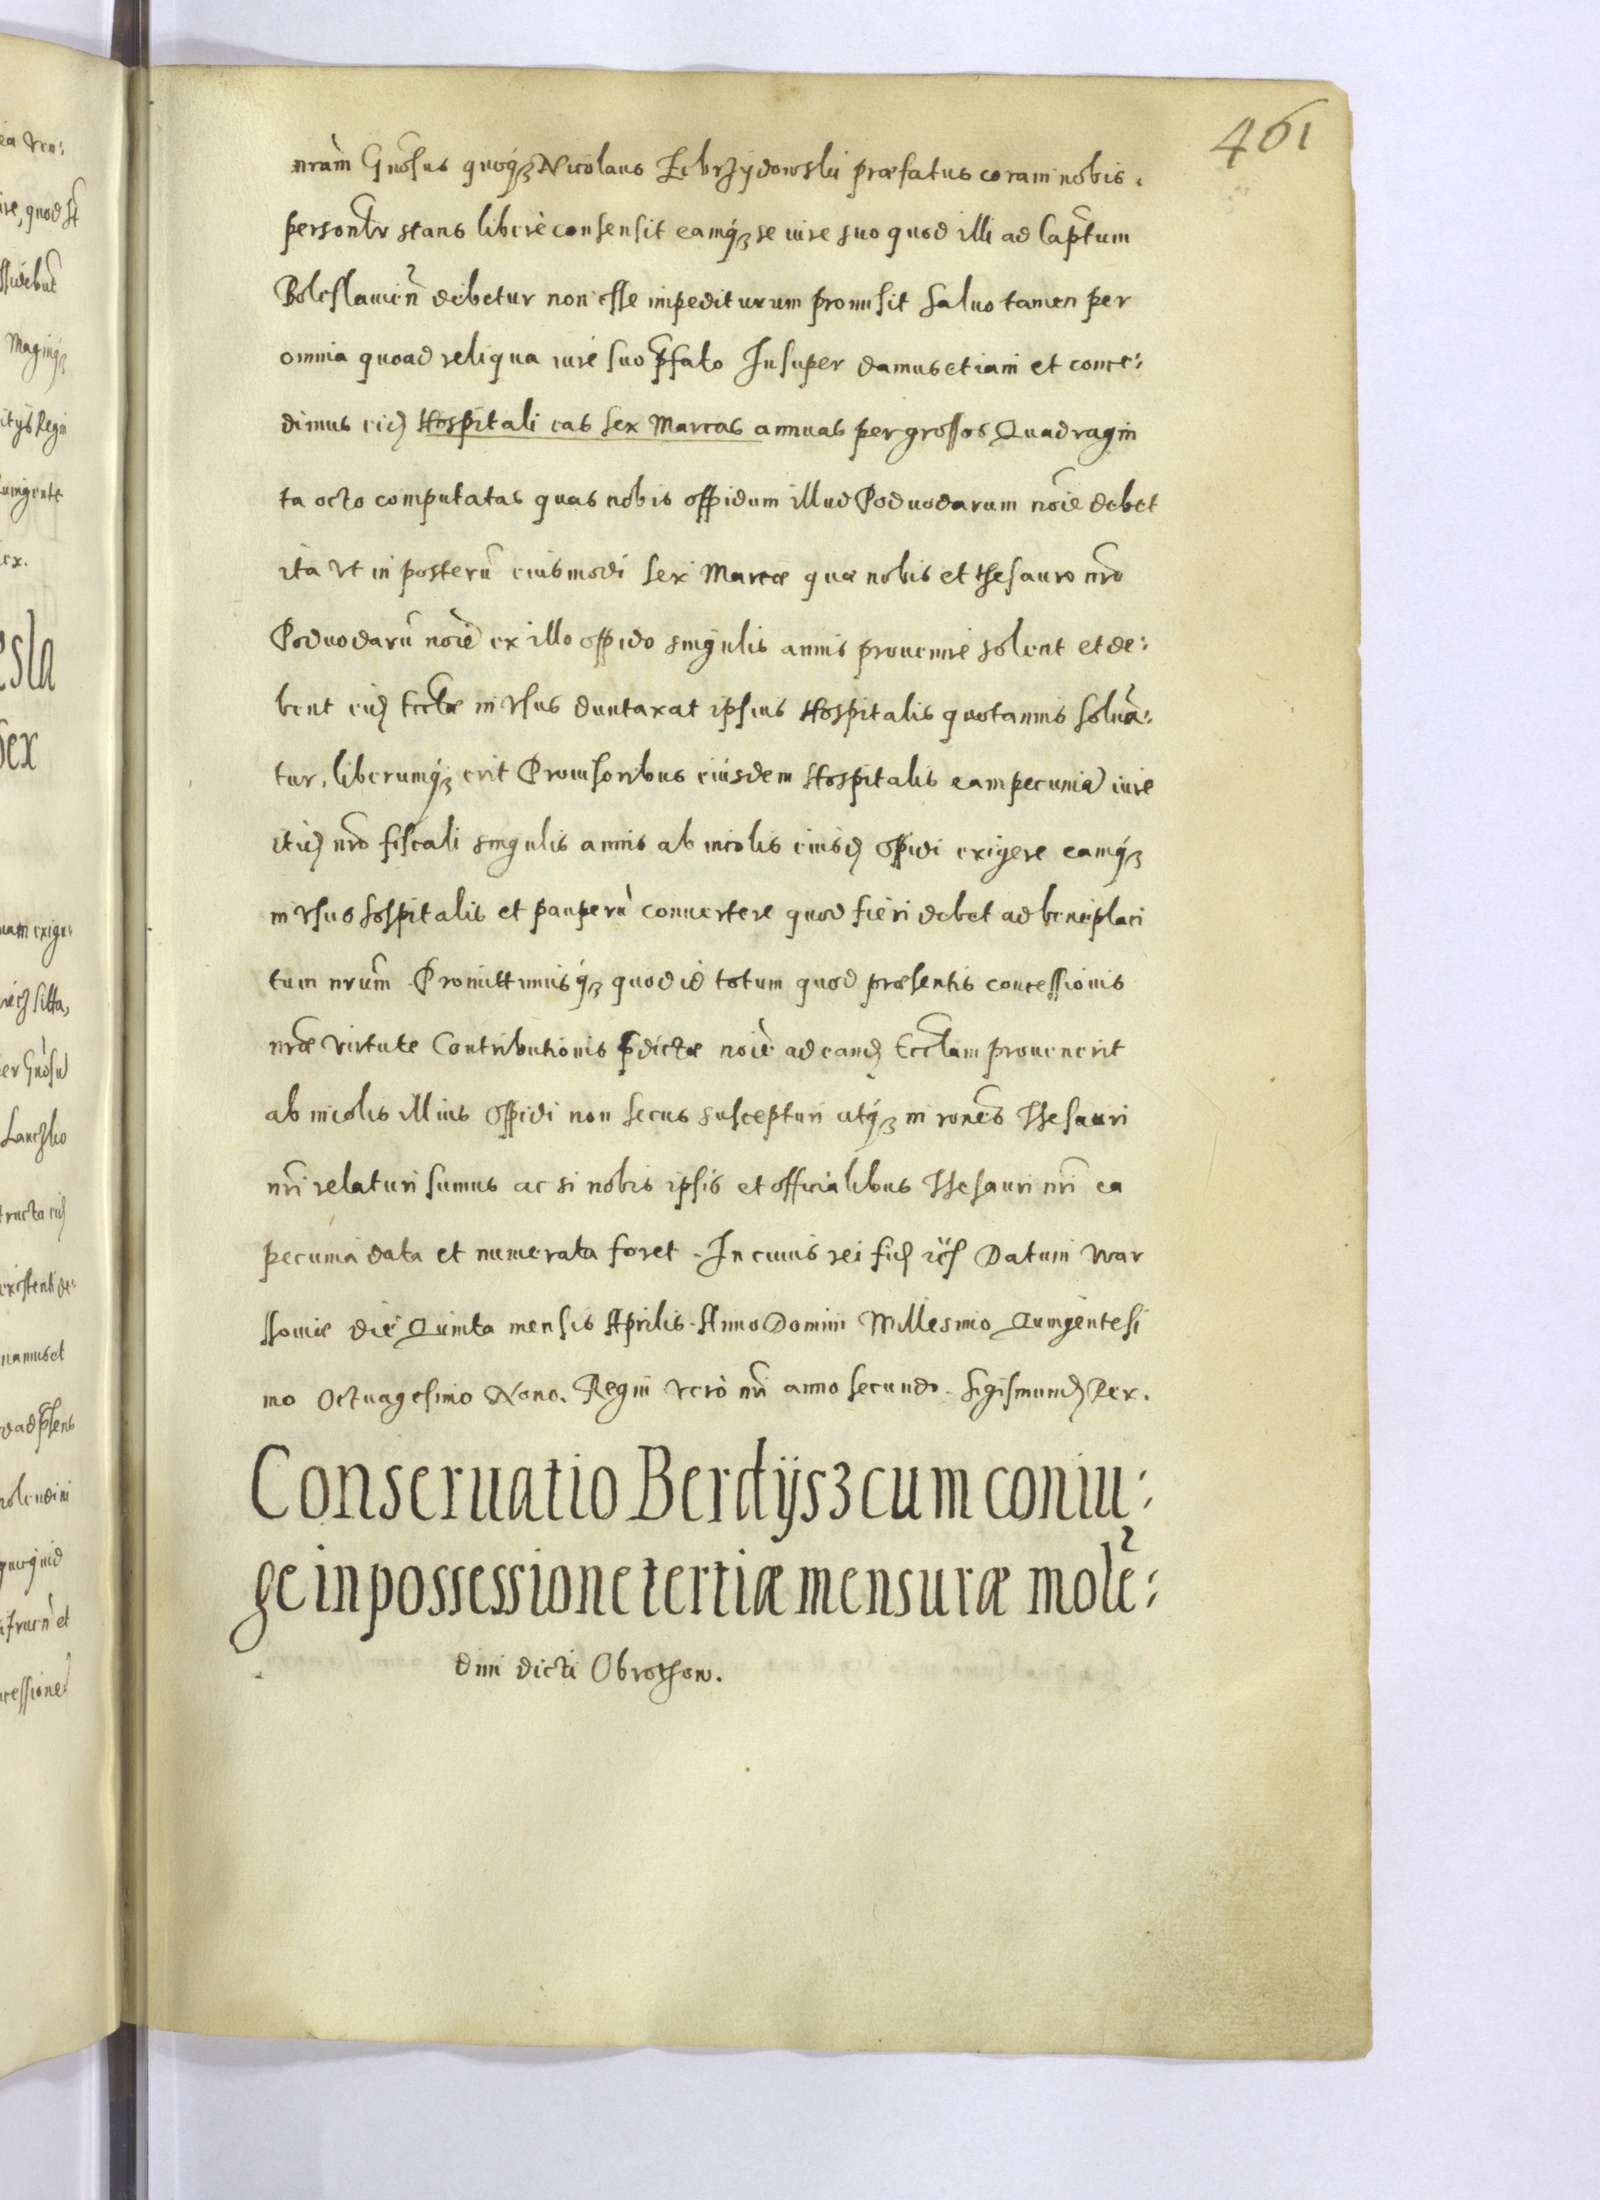 461
nram Gnosus quoq3 Nicolaus Zebrzÿdowski præfatus coram nobis.
personlr stans liberè consensit eamq3 se iure suo quod illi ad Captum
Boleslauien̄ debetur non esse impediturum promisit saluo tamen per
omnia quoad reliqua iure suo p̄fato Insuper damus etiam et conce:
dimus eid Hospitali eas sex Marcas annuas per grossos Quadragin
ta octo computatas quas nobis oppidum illud Podwodarum noie debet
ita vt in posterū eiusmodi sex Marcæ quæ nobis et thesauro nr̄o
Podwodarū noie ex illo oppido singulis annis prouenire solent et de:
bent eid Eccl̄æ in vsus duntaxat ipsius Hospitalis quotannis soluā:
tur, liberumq3 erit Prouisoribus eiusdem Hospitalis eam pecuniā iure
itid nr̄o fiscali singulis annis ab incolis eiusd oppidi exigere eamq3
in vsus hospitalis et pauperū conuertere quod fieri debet ad beneplaci
tum nrum̄ Promittimusq3 quod id totum quod præsentis concessionis
nræ virtute Contributionis p̄dictæ noie ad eand Eccl̄am prouenerit
ab incolis illius oppidi non secus suscepturi atq3 in rones̄ Thesauri
nr̄i relaturi sumus ac si nobis ipsis et officialibus Thesauri nr̄i ea
pecunia data et numerata foret. In cuius rei fid Datum War
ssouiæ die Quinta mensis Aprilis. Anno Domini Millesimo Quingentesi
mo Octuagesimo Nono. Regni verò nr̄i anno secundo. Sigismund Rex.
Conseruatio Berdÿs3 cum coniu:
ge in possessione tertiæ mensuræ molē:
dini dicti Obrothow.